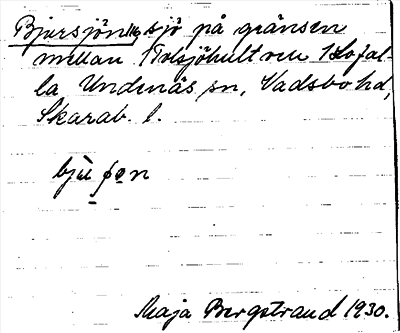 Bjursjön, sjö på gränsen
mellan Tolsjöhult och
la Undenäs sn, Vadsbo hd,
Skarab. l.
Maja Bergstrand 1930.